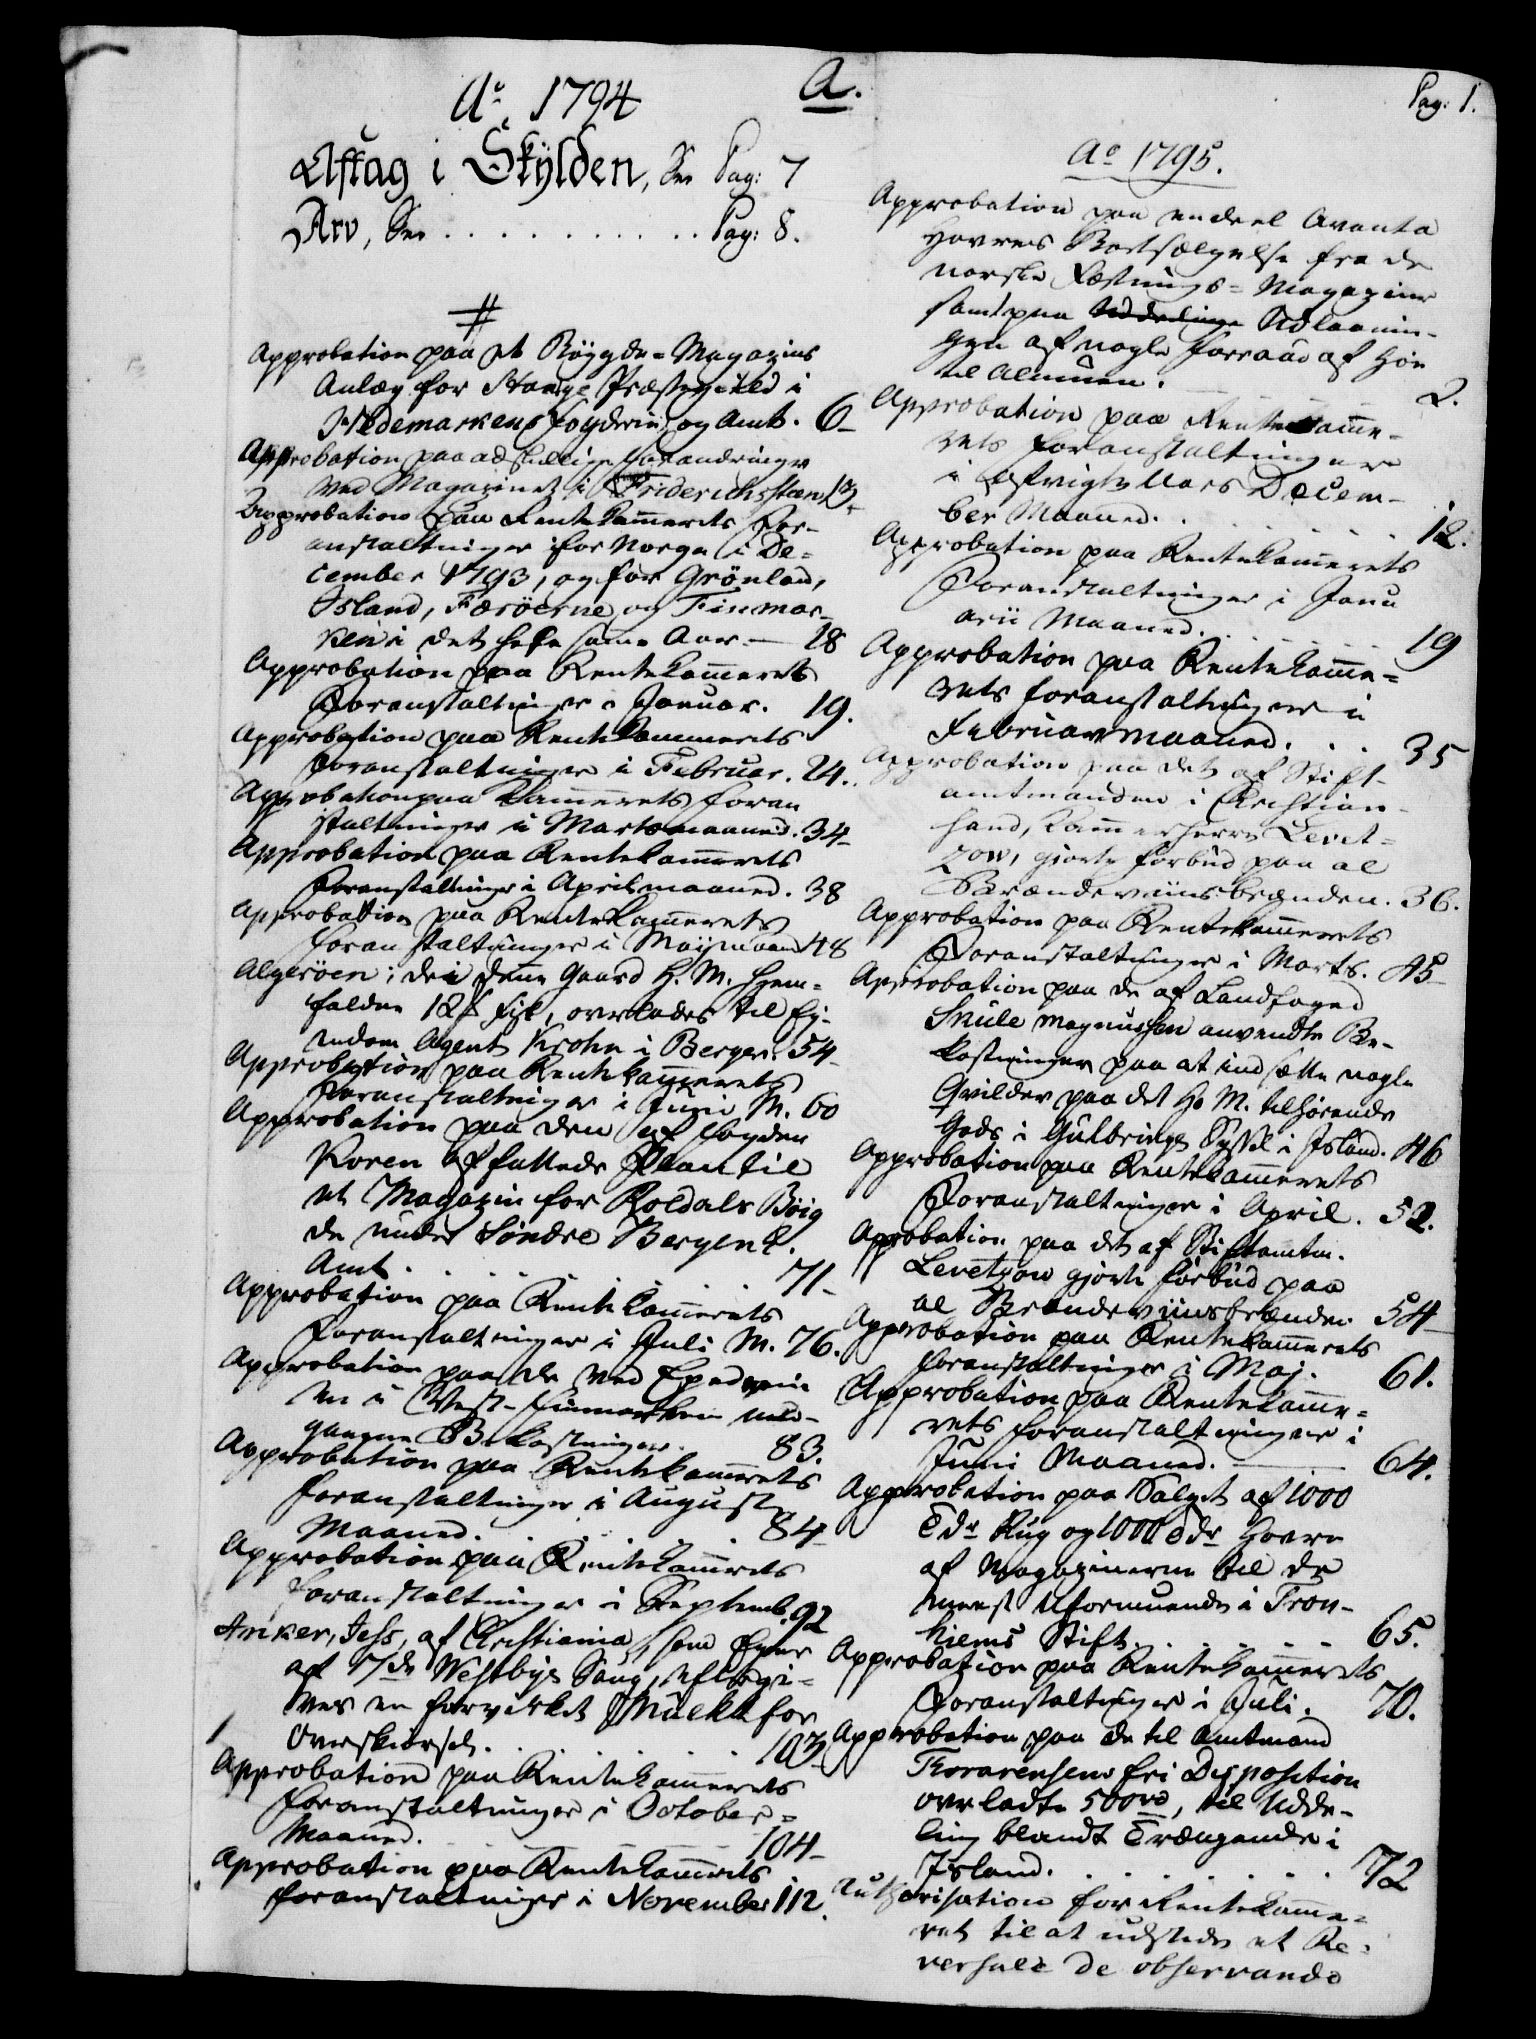 A.
Pag: 1.
Ao 1794
Afftag i Skylden, See Pag: 7
Arv, See . . . . . . . . . . . Pag: 8.
#
Approbation paa et Bøygde-Magazins
Anlæg for Stange Præstegield i
Hedemarkens Fogderie og Amt. 6
Approbation paa adskillige Forandringer
ved Magazinet i Friderichssteen 13
Approbation paa Rentekammerets For-
anstaltninger for Norge i De-
cember 1793, og for Grönland,
Island, Færöerne og Finmar-
ken i det hele samme Aar — 18
Approbation paa Rentekammerets
Foranstaltninger i Januar. 19.
Approbation paa Rentekammerets
Foranstaltninger i Februar. 24.
Approbation paa Kammerets Foran
staltninger i Martsmaaned. 34
Approbation paa Rentekammerets
Foranstaltninger i Aprilmaaned. 38
Approbation paa Rentekammerets
Foranstaltninger i Maymaaned 48
Algeröen; de i denne Gaard H. M. hiem-
faldne 18 ß Fisk, overlades til Ei-
endom Agent Krohn i Bergen. 54
Approbation paa Rentekammerets
Foranstaltninger i Juni M. 60
Approbation paa den af Fogden
Koren affattede Plan til
et Magazin for Röldals Böig
de under Söndre Bergenh.
Amt . . . . . . 71
Approbation paa Rentekammerets
Foranstaltninger i Juli M. 76.
Approbation paa de ved Epedemi
en i Vest-Finmarken med-
gaaene Bekostninger. 83.
Approbation paa Rentekammerets
Foranstaltninger i August
Maaned. . . . . . 84
Approbation paa Rentekammerets
Foranstaltninger i Septemb. 92
Anker, Jess, af Christiania, som Eyer
af Westbye Saug, eftergi-
ves en forvirket Mulkt for
Overskiærsel. . . . . . 103
Approbation paa Rentekammerets
Foranstaltninger i October-
Maaned. . . . . . 104
Approbation paa Rentekammerets
Foranstaltninger i November 112.
Ao 1795.
Approbation paa endeel
Havres Bortsælgelse fra de
norske Fæstnings-Magaziner
samt paa Uddeling Udlaanin-
gen af nogle Forraad af Höe
til Almuen. 2.
Approbation paa Rentekamme-
rets Foranstaltninger
i afvigte Aars Decem-
ber Maaned. . . . . . 12.
Approbation paa Rentekammerets
Foranstaltninger i Janu
arii Maaned. . . . . . 19
Approbation paa Rentekamme-
rets Foranstaltninger i
Februar Maaned. . . . 35
Approbation paa det af Stift-
amtmanden i Christian-
sand, Kammerherre Levet-
zow, giorte Forbud paa al
Brændeviinsbrænden. 36.
Approbation paa Rentekammerets
Foranstaltninger i Marts. 45
Approbation paa de af Landfoged
Skule Magnussen anvendte Be-
kostninger paa at indsætte nogle
Qvilder paa det H. M. tilhörende
Gods i Guldbringe Syssel i Island. 46
Approbation paa Rentekammerets
Foranstaltninger i April. 52.
Approbation paa det af Stiftamtm.
Levetzow giorte Forbud paa
al Brændeviinsbrænden 54
Approbation paa Rentekammerets
Foranstaltninger i Maj. 61.
Approbation paa Rentekamme-
rets Foranstaltninger i
Juni Maaned. — 64.
Approbation paa Salget af 1000
Tdr Rug og 1000 Tdr Havre
af Magazinerne til de
meest uformuende i Tron-
hiems Stift. . . . . . 65.
Approbation paa Rentekammerets
Foranstaltninger i Juli. 70.
Approbation paa de til Amtmand
Thorarensens fri Disposition
overladte 500 rd, til Udde-
ling blandt Trængende i
Island. . . . . . 72
Authorisation for Rentekamme-
ret til at udstede et Re-
versale de observando